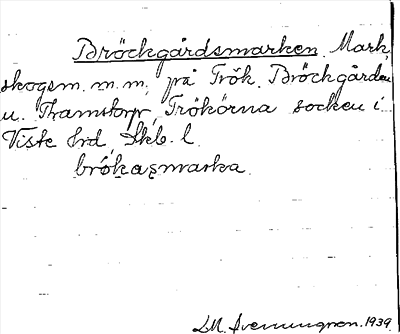 Bröckgårdsmarken. Mark,
skogsm. m. m, på Trök. Bröckgården
u. Thamstorp, Trökörna socken i
Viste hrd, Skb. l.
brókaʂmarka
LM. Svenungson. 1939.